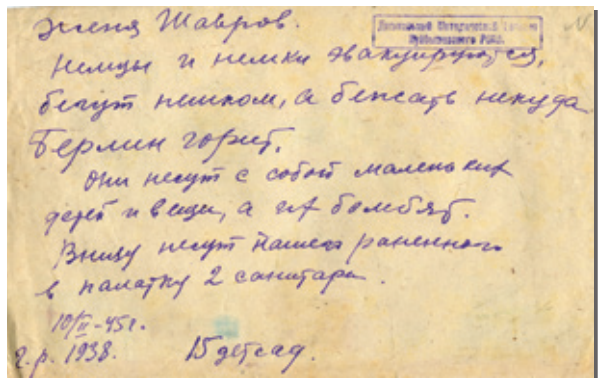 Женя Шавров.
Немцы и немки эвакуируются,
бегут пешком, а бежать некуда
Берлин горит.
Они несут с собой маленьких
детей и вещи, а их бомбят.
Внизу несут нашего раненного
в палатку 2 санитара.
10/II-45г.
г.р. 1938. 15 детсад.